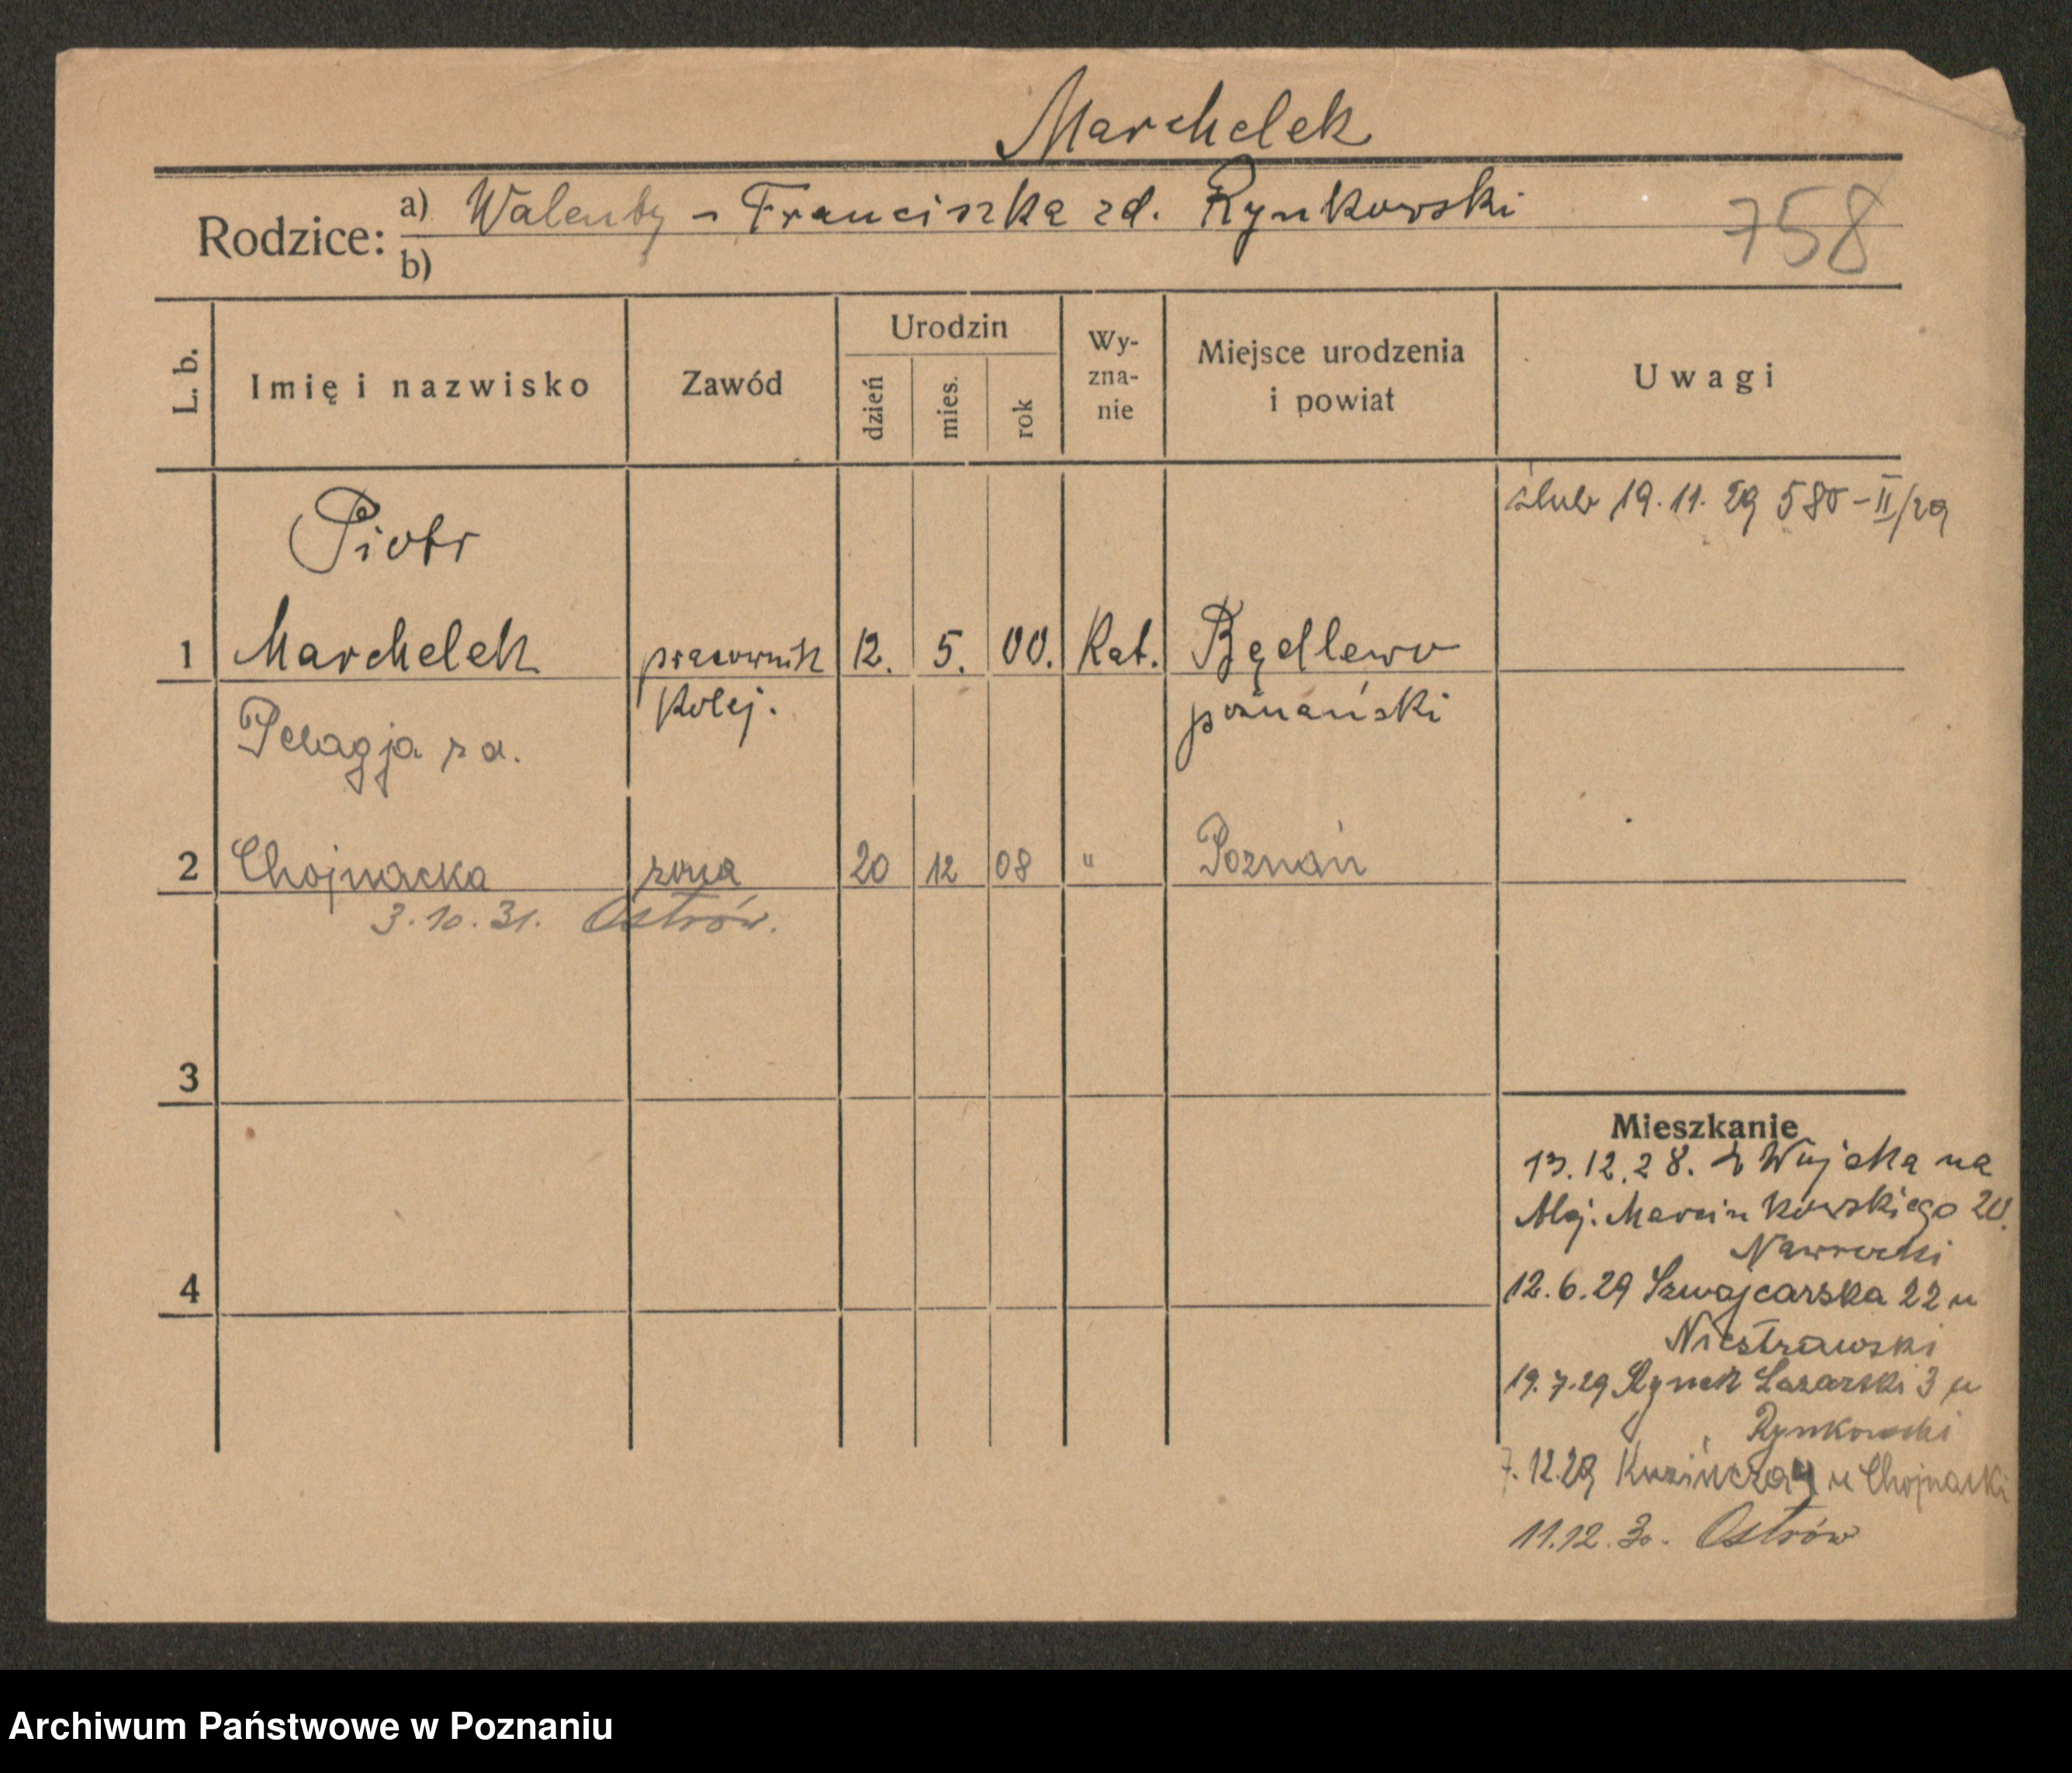 Marchelek
Rodzice: a) Walenty - Franciszka zd. Rynkowski
b)
758
L. b. Imię i nazwisko Zawód Urodzin dzień mies. rok Wyznanie Miejsce urodzenia i powiat Uwagi
ślub 19.11.29 580-II/29
Piotr
1 Marchelek pracownik 12. 5. 00. Kat. Będlewo
kolej. poznański
Pelagja zd.
2 Chojnacka żona 20 12 08 " Poznań
3.10.31. Ostrów.
3
Mieszkanie
13.12.28. z Wujeka na
Alej. Marcinkowskiego 20.
Nawrocki
4
12.6.29 Szwajcarska 22 u
Niestrawski
19.7.29 Rynek Lazarski 3 u
Rynkowski
7.12.29 u Chojnacki
11.12.30. Ostrów
Archiwum Państwowe w Poznaniu